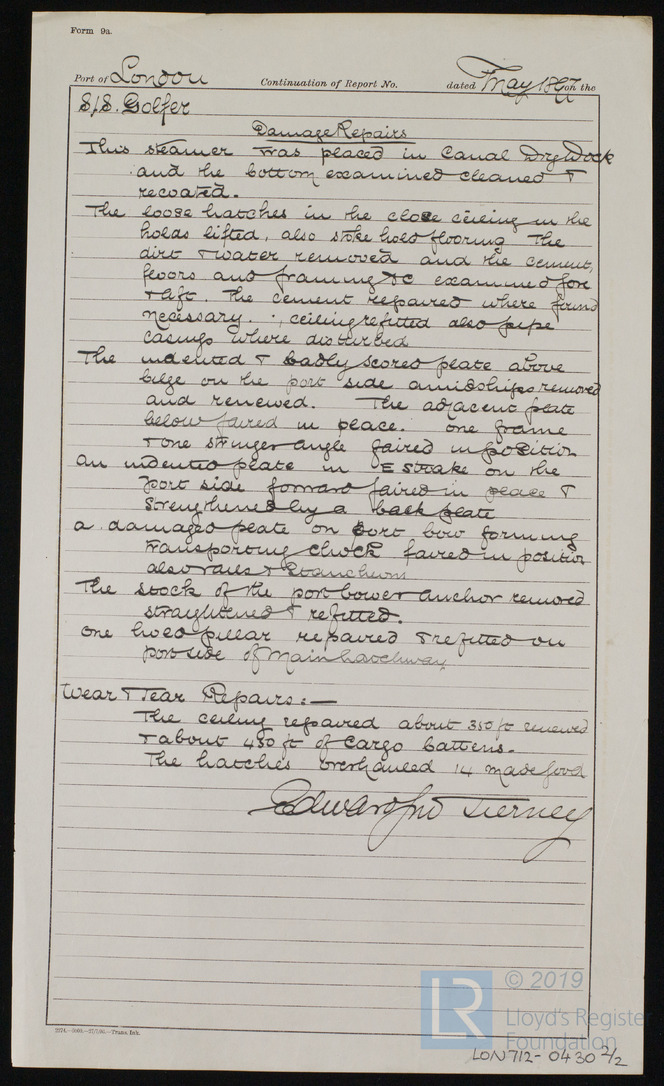 Form 9a.
Port of London Continuation of Report No. dated May 1897 on the
S/S. Golfer
Damage Repairs
This steamer was placed in Canal Dry Dock
and the bottom examined cleaned &
recoated.
The loose hatches in the close ceiling in the
holds lifted, also stoke hold flooring The
dirt & water removed and the cement,
floors and framing &c examined fore
& aft. The cement repaired where found
necessary. ceiling refitted also pipe
casings where disturbed
The indented & badly scored plate above
bilge on the port side amidships removed
and renewed. The adjacent plate
below faired in place. one frame
& one stringer angle faired in position
an indented plate in E Strake on the
port side forward faired in place &
strengthened by a back plate
a damaged plate on port bow forming
transporting chock faired in position
also rails & Stanchions
The stock of the port bower anchor removed
straightened & refitted.
one hold pillar repaired & refitted on
port side of Main hatchway
Wear & Tear Repairs:—
The ceiling repaired about 350 ft renewed
& about 450 ft of cargo battens.
The hatches overhauled 14 made good
Edward Jno Tierney
© 2019
LR
Lloyd's Register
Foundation
LON712-0430 2/2